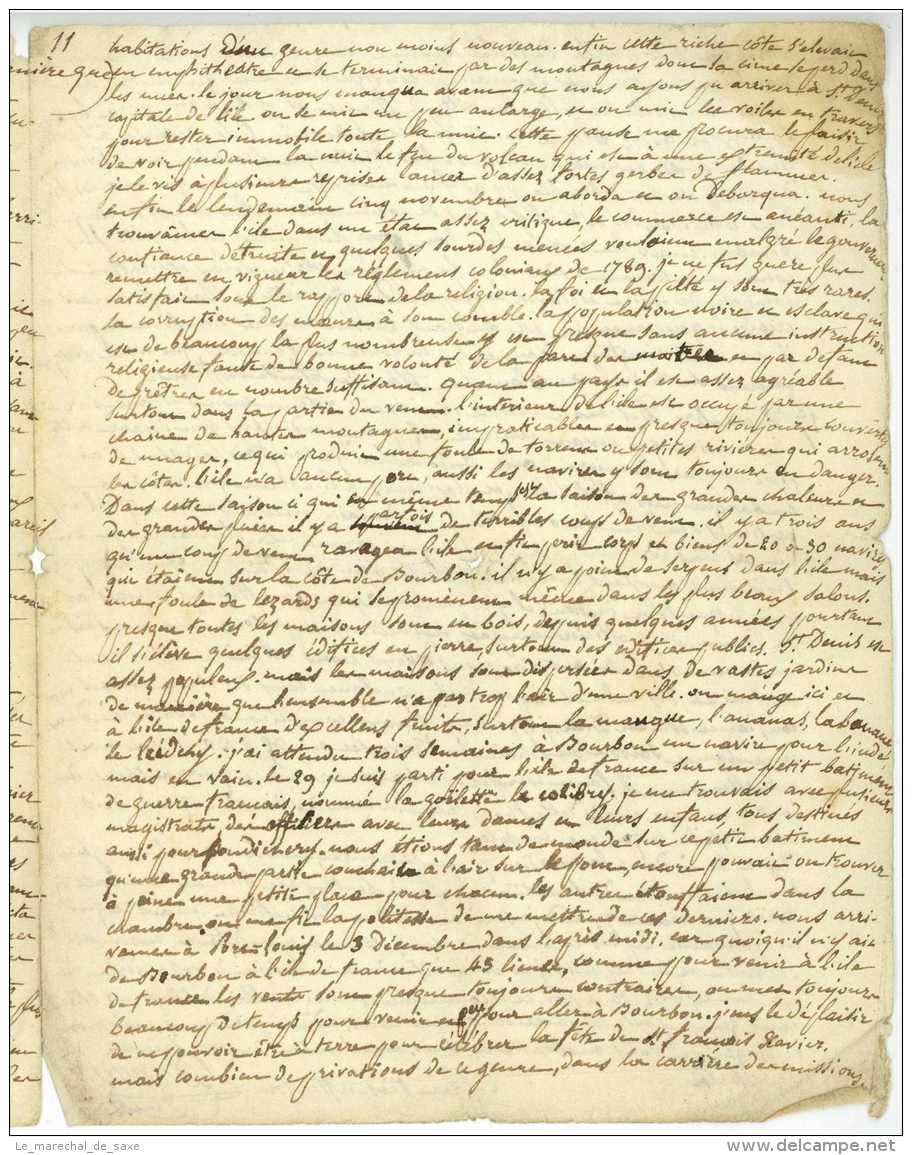 11
habitations d'un genre non moins nouveau. enfin cette riche côte s'elevait
en emphitheatre et se terminait par des montagnes dont la cime se perd dans
les nues. le jour nous manqua avant que nous ayons pu arriver à St Denis
capitale de l'ile. on se mit un peu au large, et on mit les voiles en travers
pour rester immobile toute la nuit. cette pause me procura le plaisir
de voir pendant la nuit le feu du volcan qui est à une extremité de l'ile
je le vis à plusieurs reprises lancer d'assez fortes gerbes de flammes.
enfin le lendemain cinq novembre on aborda et on debarqua. nous
trouvâmes l'ile dans un état assez critique, le commerce est anéanti, la
confiance detruite et quelques sourdes menées voulaient malgré le gouverneur
remettre en vigueur les réglemens coloniaux de 1789. je ne fus guere plus
satisfait sous le rapport de la religion. la foi et la piété y sont très rares.
la corruption des mœurs à son comble. la population noire et esclave qui
est de beaucoup la plus nombreuse est presque sans aucune instruction
religieuse faute de bonne volonté de la part des maitres et par defaut
de prêtres en nombre suffisant. quant au pays il est assez agréable
surtout dans la partie du vent. l'interieur de l'ile est occupé par une
chaine de hautes montagnes, impraticables et presque toujours couvertes
de nuages, ce qui produit une foule de torrens ou petites rivieres qui arrosent
les côtes. l'ile n'a aucun port, aussi les navires y sont toujours en danger.
Dans cette saison ci qui est en même temps la saison des grandes chaleurs et
des grandes pluies il y a parfois de terribles coups de vent. il y a trois ans
qu'un coup de vent ravagea l'ile et fit perir corps et biens de 20 à 30 navires
qui étaient sur la côte de Bourbon. il n'y a point de serpens dans l'ile mais
une foule de lezards qui se promènent même dans les plus beaux salons.
presque toutes les maisons sont en bois, depuis quelques années pourtant
il s'élève quelques édifices en pierre, surtout des édifices publics. St. Denis est
assez populeux. mais les maisons sont dispersées dans de vastes jardins
de maniére que l'ensemble n'a pas trop l'air d'une ville. on mange ici et
à l'ile de france d'excellens fruits, surtout la mangue, l'ananas, la banane,
le leedchy. j'ai attendu trois semaines à Bourbon un navire pour l'inde
mais en vain. le 29 je suis parti pour l'ile de france sur un petit batiment
de guerre francais, nommé la goëlette le colibry. je me trouvais avec plusieurs
magistrats, des officiers avec leurs dames et leurs enfans, tous destinés
aussi pour Pondichery. nous étions tant de monde sur ce petit batiment
qu'une grande partie couchait à l'air sur le pont, encore pouvait-on trouver
à peine une petite place pour chacun. les autres étouffaient dans la
chambre. on me fit la politesse de me mettre de ces derniers. nous arri-
vames à Port-Louis le 3 Décembre dans l'après midi. car quoiqu'il n'y ait
de Bourbon à l'ile de france que 45 lieues, comme pour venir à l'ile
de france les vents sont presque toujours contraires, on met toujours
beaucoup de temps pour venir et peu pour aller à Bourbon. j'eus le déplaisir
de ne pouvoir être à terre pour célébrer la fête de St francois Xavier.
mais combien de privations de ce genre, dans la carrière des missions.
Le_marechal_de_saxe
www.delcampe.net